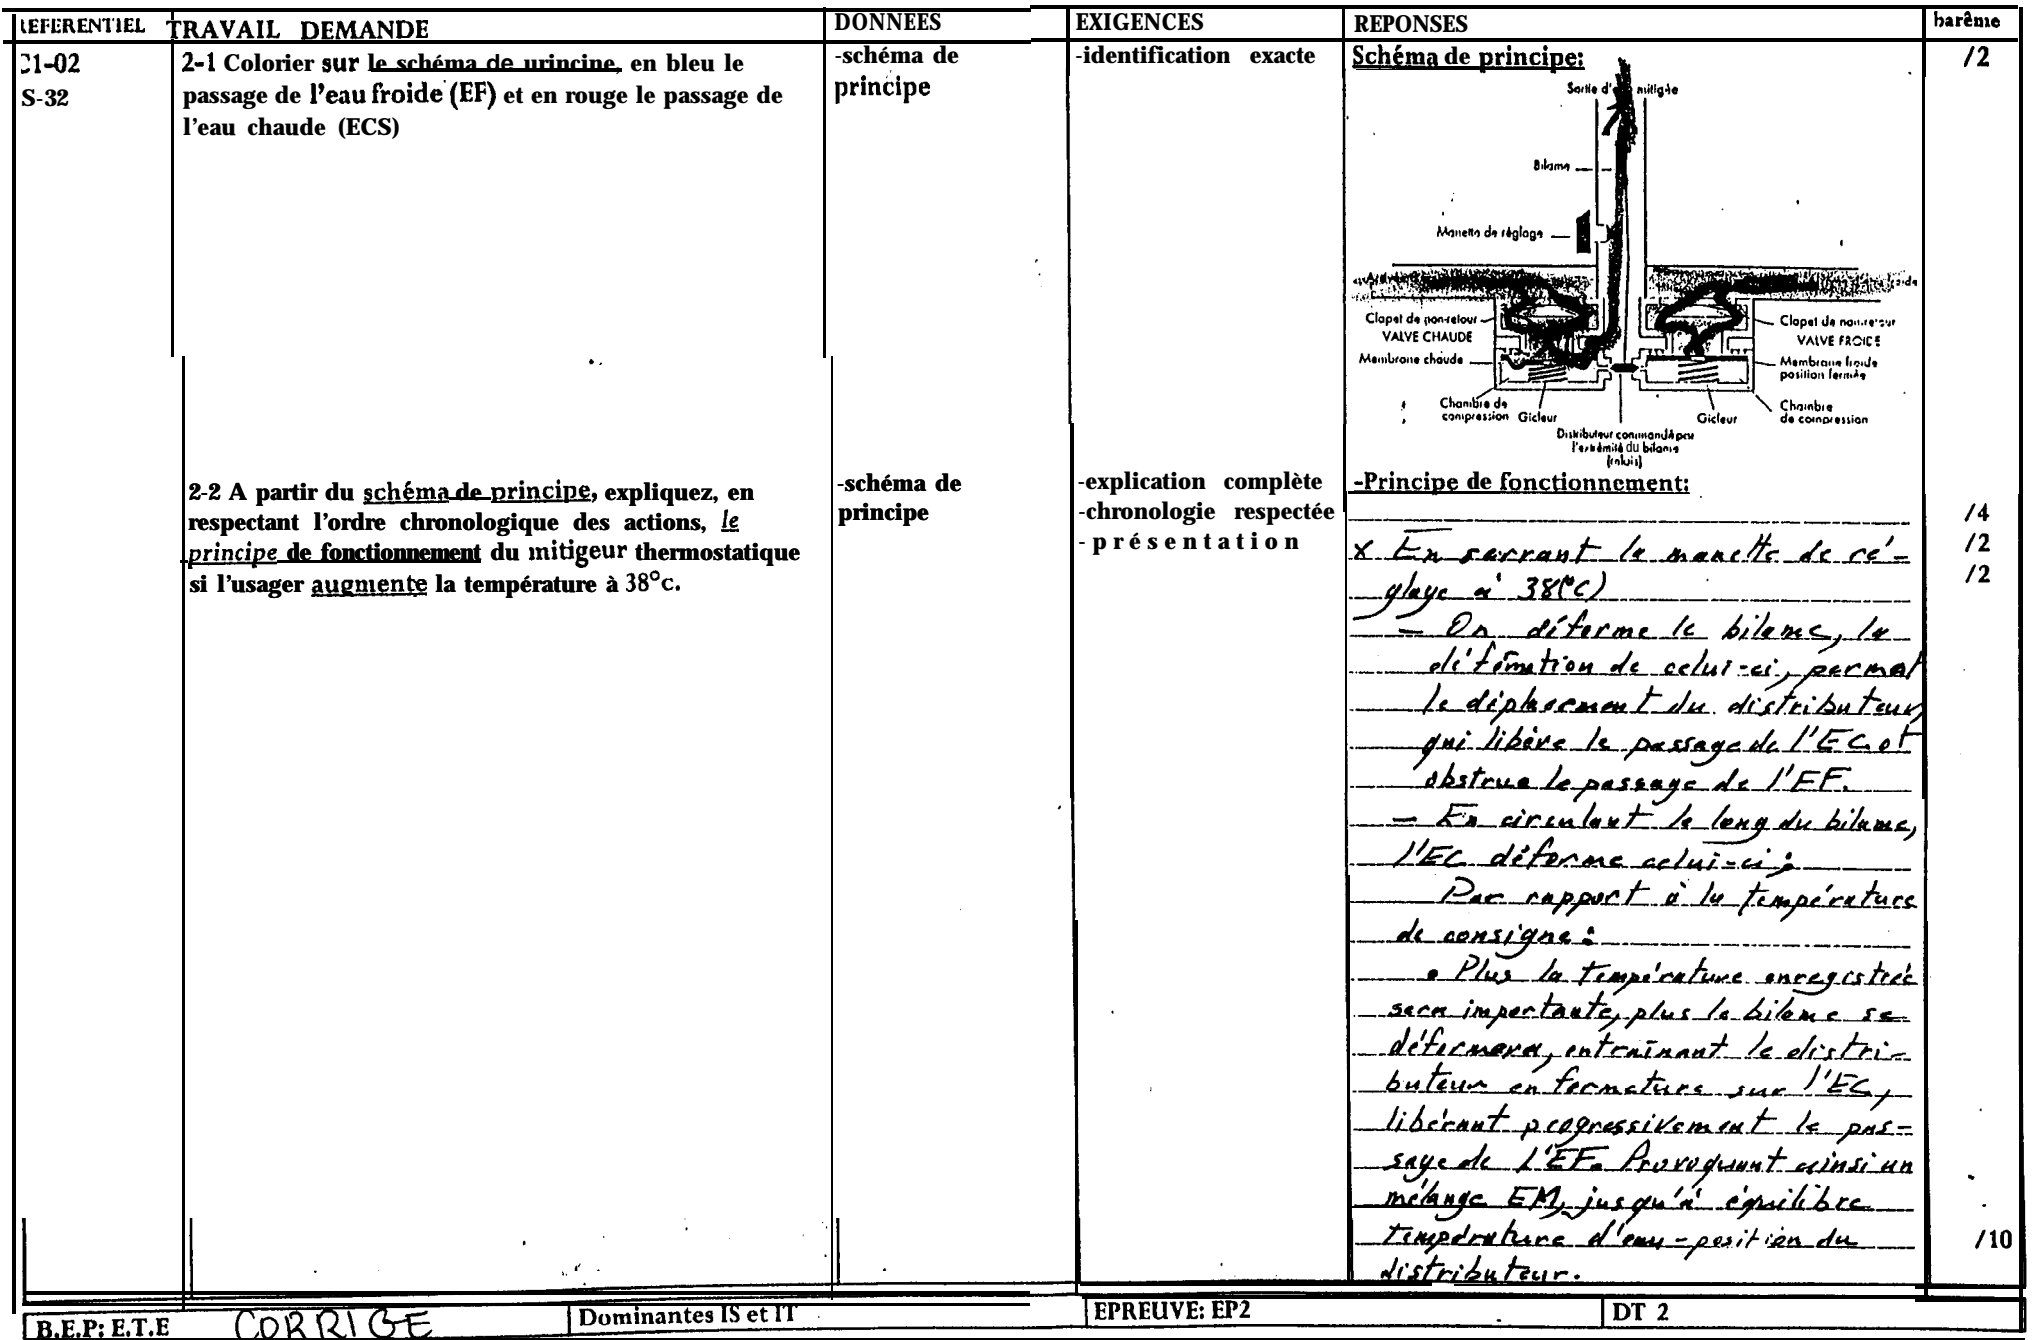 REFERENTIEL TRAVAIL DEMANDE DONNEES EXIGENCES REPONSES barême
C1-02
S-32
2-1 Colorier sur le schéma de urincine, en bleu le
passage de l'eau froide (EF) et en rouge le passage de
l'eau chaude (ECS)
-schéma de
principe
-identification exacte
Schéma de principe:
/2
Sortie d'eau mitigée
Bilame
Manette de réglage
Clapet de non-retour
VALVE CHAUDE
Membrane chaude
Chambre de
compression
Gicleur
Distributeur commandé par
l'extrémité du bilame
(relais)
Clapet de non-retour
VALVE FROIDE
Membrane froide
position fermée
Chambre
de compression
Gicleur
2-2 A partir du schéma de principe, expliquez, en
respectant l'ordre chronologique des actions, le
principe de fonctionnement du mitigeur thermostatique
si l'usager augmente la température à 38°c.
-schéma de
principe
-explication complète
-chronologie respectée
-présentation
-Principe de fonctionnement:
/4
/2
/2
x En serrant la manette de ré-
glage à 38(°C)
- On déforme le bilame, la
défomation de celui-ci, permet
le déplacement du distributeur,
qui libère le passage de l'EC et
obstrue le passage de l'EF.
- En circulant le long du bilame,
l'EC déforme celui-ci :
Par rapport à la température
de consigne :
• Plus la température enregistrée
sera importante, plus le bilame se
déformera, entraînant le distri-
buteur en fermeture sur l'EC,
libérant progressivement le pas-
sage de l'EF. Provoquant ainsi un
mélange EM, jusqu'à équilibre
température d'eau - position du
distributeur.
/10
B.E.P: E.T.E CORRIGE Dominantes IS et IT EPREUVE: EP2 DT 2